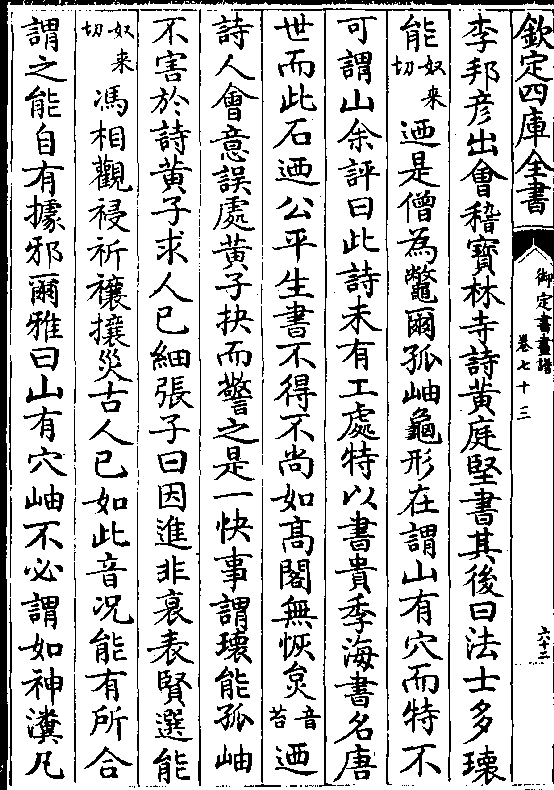 欽定四庫全書
御定書畫譜
卷七十三
六十二
李邦彦出會稽寳林寺詩黄庭堅書其後曰法士多瓌
能奴来切迺是僧為鼈爾孤岫龜形在謂山有穴而特不
可謂山余評曰此詩未有工處特以書貴季海書名唐
世而此石迺公平生書不得不尚如髙閣無恢炱音苔迺
詩人會意誤處黄子抉而警之是一快事謂瓌能孤岫
不害於詩黄子求人已細張子曰因進非裒表賢選能
奴来切馮相觀祲祈禳攘災古人已如此音况能有所合
謂之能自有據邪爾雅曰山有穴岫不必謂如神瀵凡